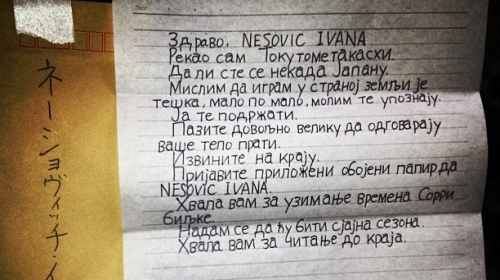 ネーショヴィッチ・イ
Здраво, NESOVIC IVANA
Рекао сам Токутометакасхи.
Да ли сте се некада Јапану.
Мислим да играм у страној земљи је
тешка, мало по мало, молим те упознају.
Ја те подржати.
Пазите довољно велику да одговарају
ваше тело прати.
Извините на крају.
Пријавите приложени обојени папир да
NESOVIC IVANA.
Хвала вам за узимање времена Сорри
биљке.
Надам се да ћу бити сјајна сезона.
Хвала вам за читање до краја.